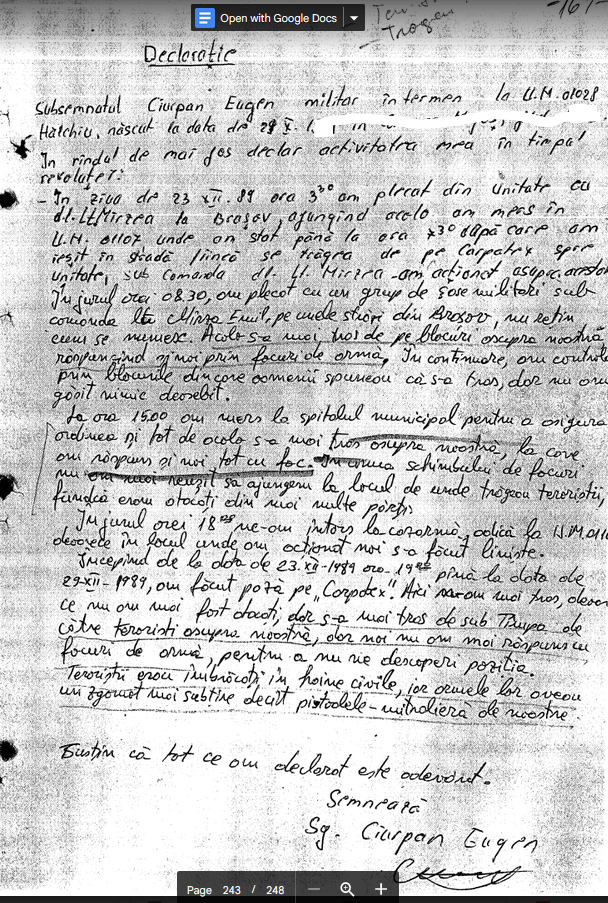 Open with Google Docs
-161-
Trogen
Declarație
Subsemnatul Ciurpan Eugen militar în termen la U.M. 01028
Hălchiu, născut la data de 29 X. 1
În rîndul de mai jos declar activitatea mea în timpul
revoluției:
- În ziua de 23 XII. 89 ora 3³⁰ am plecat din unitate cu
dl. Lt. Mirzea la Brașov, ajungînd acolo am mers în
U.M. 01107 unde am stat până la ora 7³⁰ după care am
ieșit în stradă fiincă se trăgea de pe Carpatex spre
unitate, sub comanda dl. Lt. Mirzea am acționat asupra
În jurul orei 08.30, am plecat cu un grup de șase militari sub
comanda Emil, pe unele străzi din Brașov, nu rețin
cum se numesc. Acolo s-a mai tras de pe blocuri asupra noastră
răspunzînd și noi prin focuri de armă. În continuare, am
prin blocurile din care oamenii spuneau că s-a tras, dar nu am
găsit nimic deosebit.
La ora 15.00 am mers la spitalul municipal pentru a asigura
ordinea și tot de acolo s-a mai tras asupra noastră, la care
am răspuns și noi tot cu foc. În urma schimbului de focuri
nu am mai reușit să ajungem la locul de unde trăgeau teroriștii,
fiindcă eram atacați din mai multe părți.
În jurul orei 18 ne-am întors la cazarmă, adică la U.M.
deoarece în locul unde am acționat noi s-a făcut liniște.
Începînd de la data de 23.XII-1989 ora 19 pînă la data de
29-XII-1989, am făcut pază pe „Carpatex". Aici am mai tras,
ce nu am mai fost atacați, dar s-a mai tras de sub Tîmpa de
către teroriști asupra noastră, dar noi nu am mai răspuns cu
focuri de armă, pentru a nu ne descoperi poziția.
Teroriștii erau îmbrăcați în haine civile, iar armele lor aveau
un zgomot mai subțire decît pistoalele-mitralieră de noastre.
Susțin că tot ce am declarat este adevărat.
Semnează
Sg. Ciurpan Eugen
Page 243 / 248